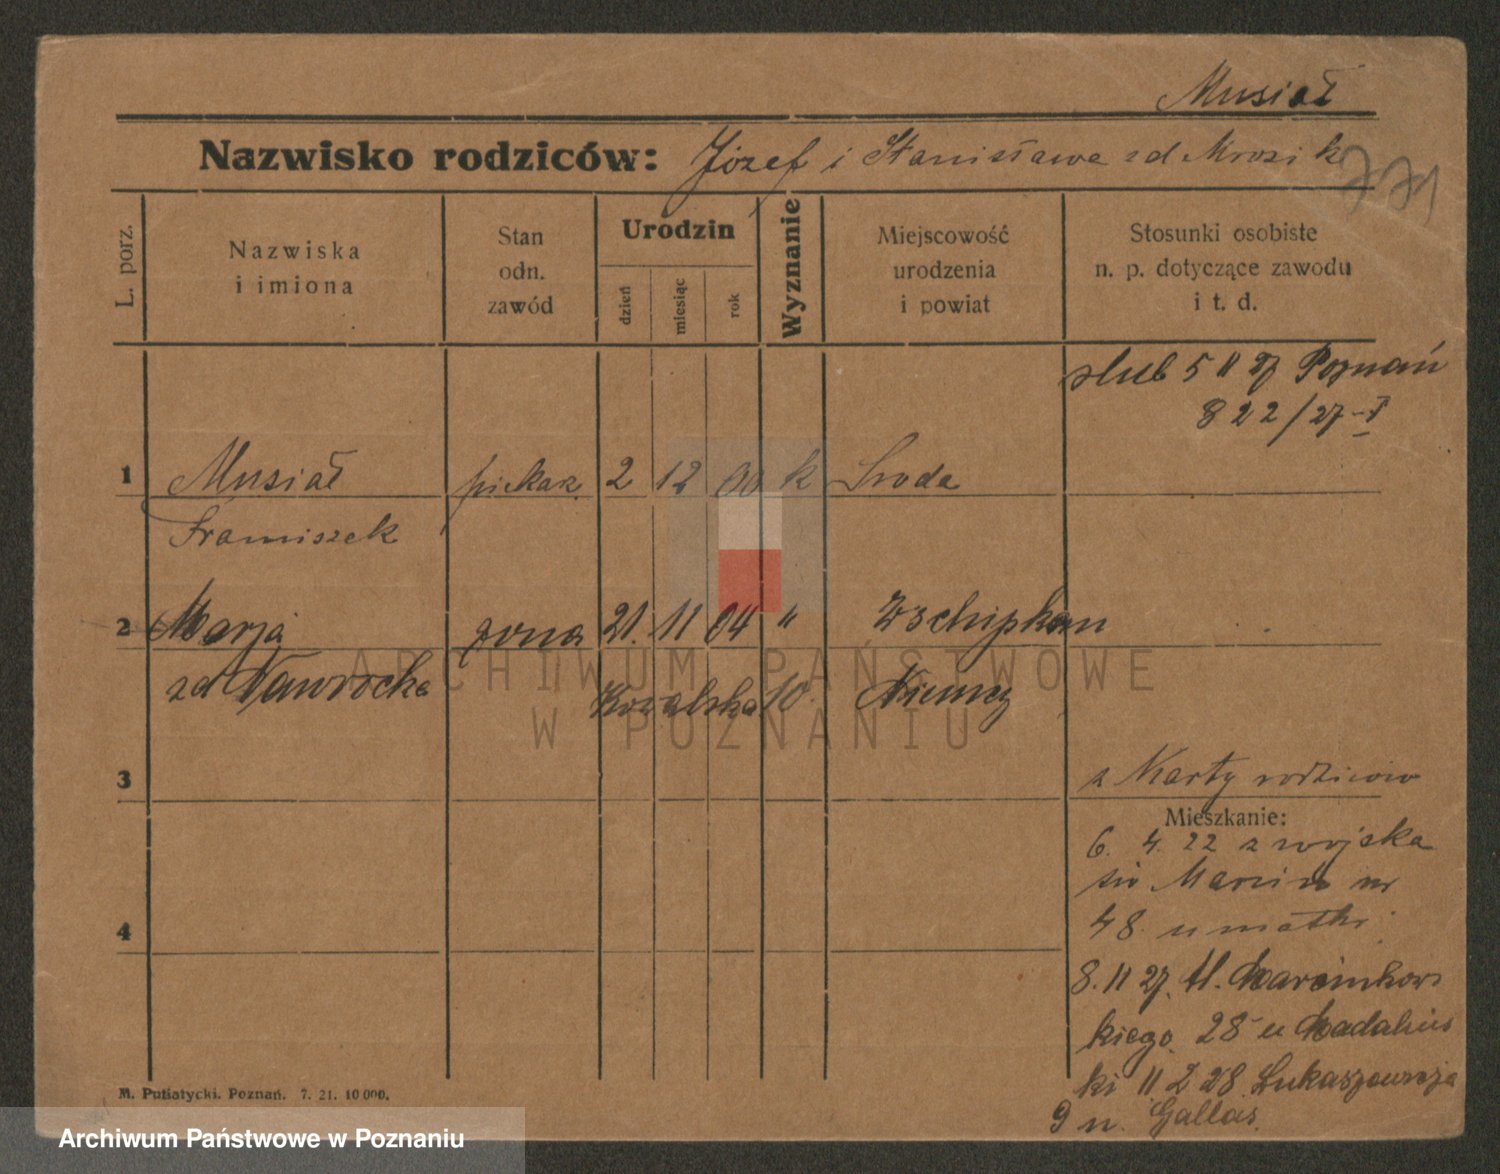 Musiał
Nazwisko rodziców: Józef i Stanisława zd Mrozik
771
L. porz.
Nazwiska i imiona
Stan odn. zawód
Urodzin
dzień
miesiąc
rok
Wyznanie
Miejscowość urodzenia i powiat
Stosunki osobiste n. p. dotyczące zawodu i t. d.
slub 5 11 27 Poznań
822/27-I
1 Musiał piekarz 2 12 00 k Sroda
Franciszek
2 Marja żona 21. 11 04 " Zschipkau
zd Nawrocka Kowalska 10. Niemcy
ARCHIWUM PAŃSTWOWE
W POZNANIU
3
z Karty rodziców
Mieszkanie:
6. 4. 22 z wojska
św Marcin nr
4
48 u matki
8. 11 27. Al. Marcinkows
kiego 28 u Madalińs
ki 11 2 28 Łukaszewicza
9 u. Gallas.
M. Putiatycki. Poznań. 7. 21. 10 000.
Archiwum Państwowe w Poznaniu